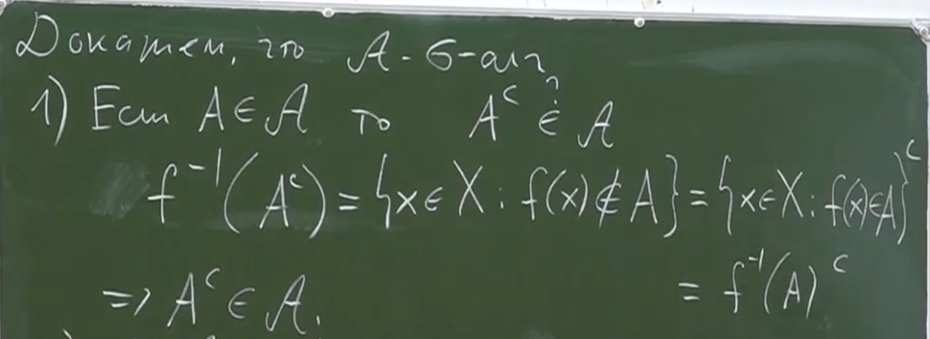 Докажем, что 𝒜 - σ-алг
1) Если A ∈ 𝒜 то A^c ∈^? 𝒜
f^{-1}(A^c) = {x ∈ X : f(x) ∉ A} = {x ∈ X : f(x) ∈ A}^c
= f^{-1}(A)^c
=> A^c ∈ 𝒜.